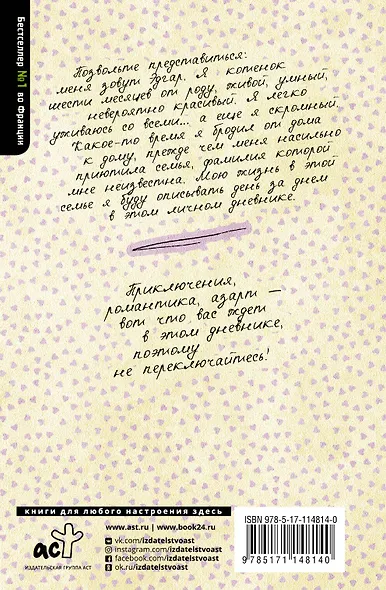 Бестселлер №1 во Франции
Позвольте представиться:
меня зовут Эдгар. Я котенок
шести месяцев от роду, живой, умный,
невероятно красивый. Я легко
уживаюсь со всеми... а еще я скромный.
Какое-то время я бродил от дома
к дому, прежде чем меня насильно
приютила семья, фамилия которой
мне неизвестна. Мою жизнь в этой
семье я буду описывать день за днем
в этом личном дневнике.
Приключения,
романтика, азарт —
вот что вас ждет
в этом дневнике,
поэтому
не переключайтесь!
книги для любого настроения здесь
аст
ИЗДАТЕЛЬСКАЯ ГРУППА АСТ
www.ast.ru | www.book24.ru
vk.com/izdatelstvoast
instagram.com/izdatelstvoast
facebook.com/izdatelstvoast
ok.ru/izdatelstvoast
ISBN 978-5-17-114814-0
9785171148140